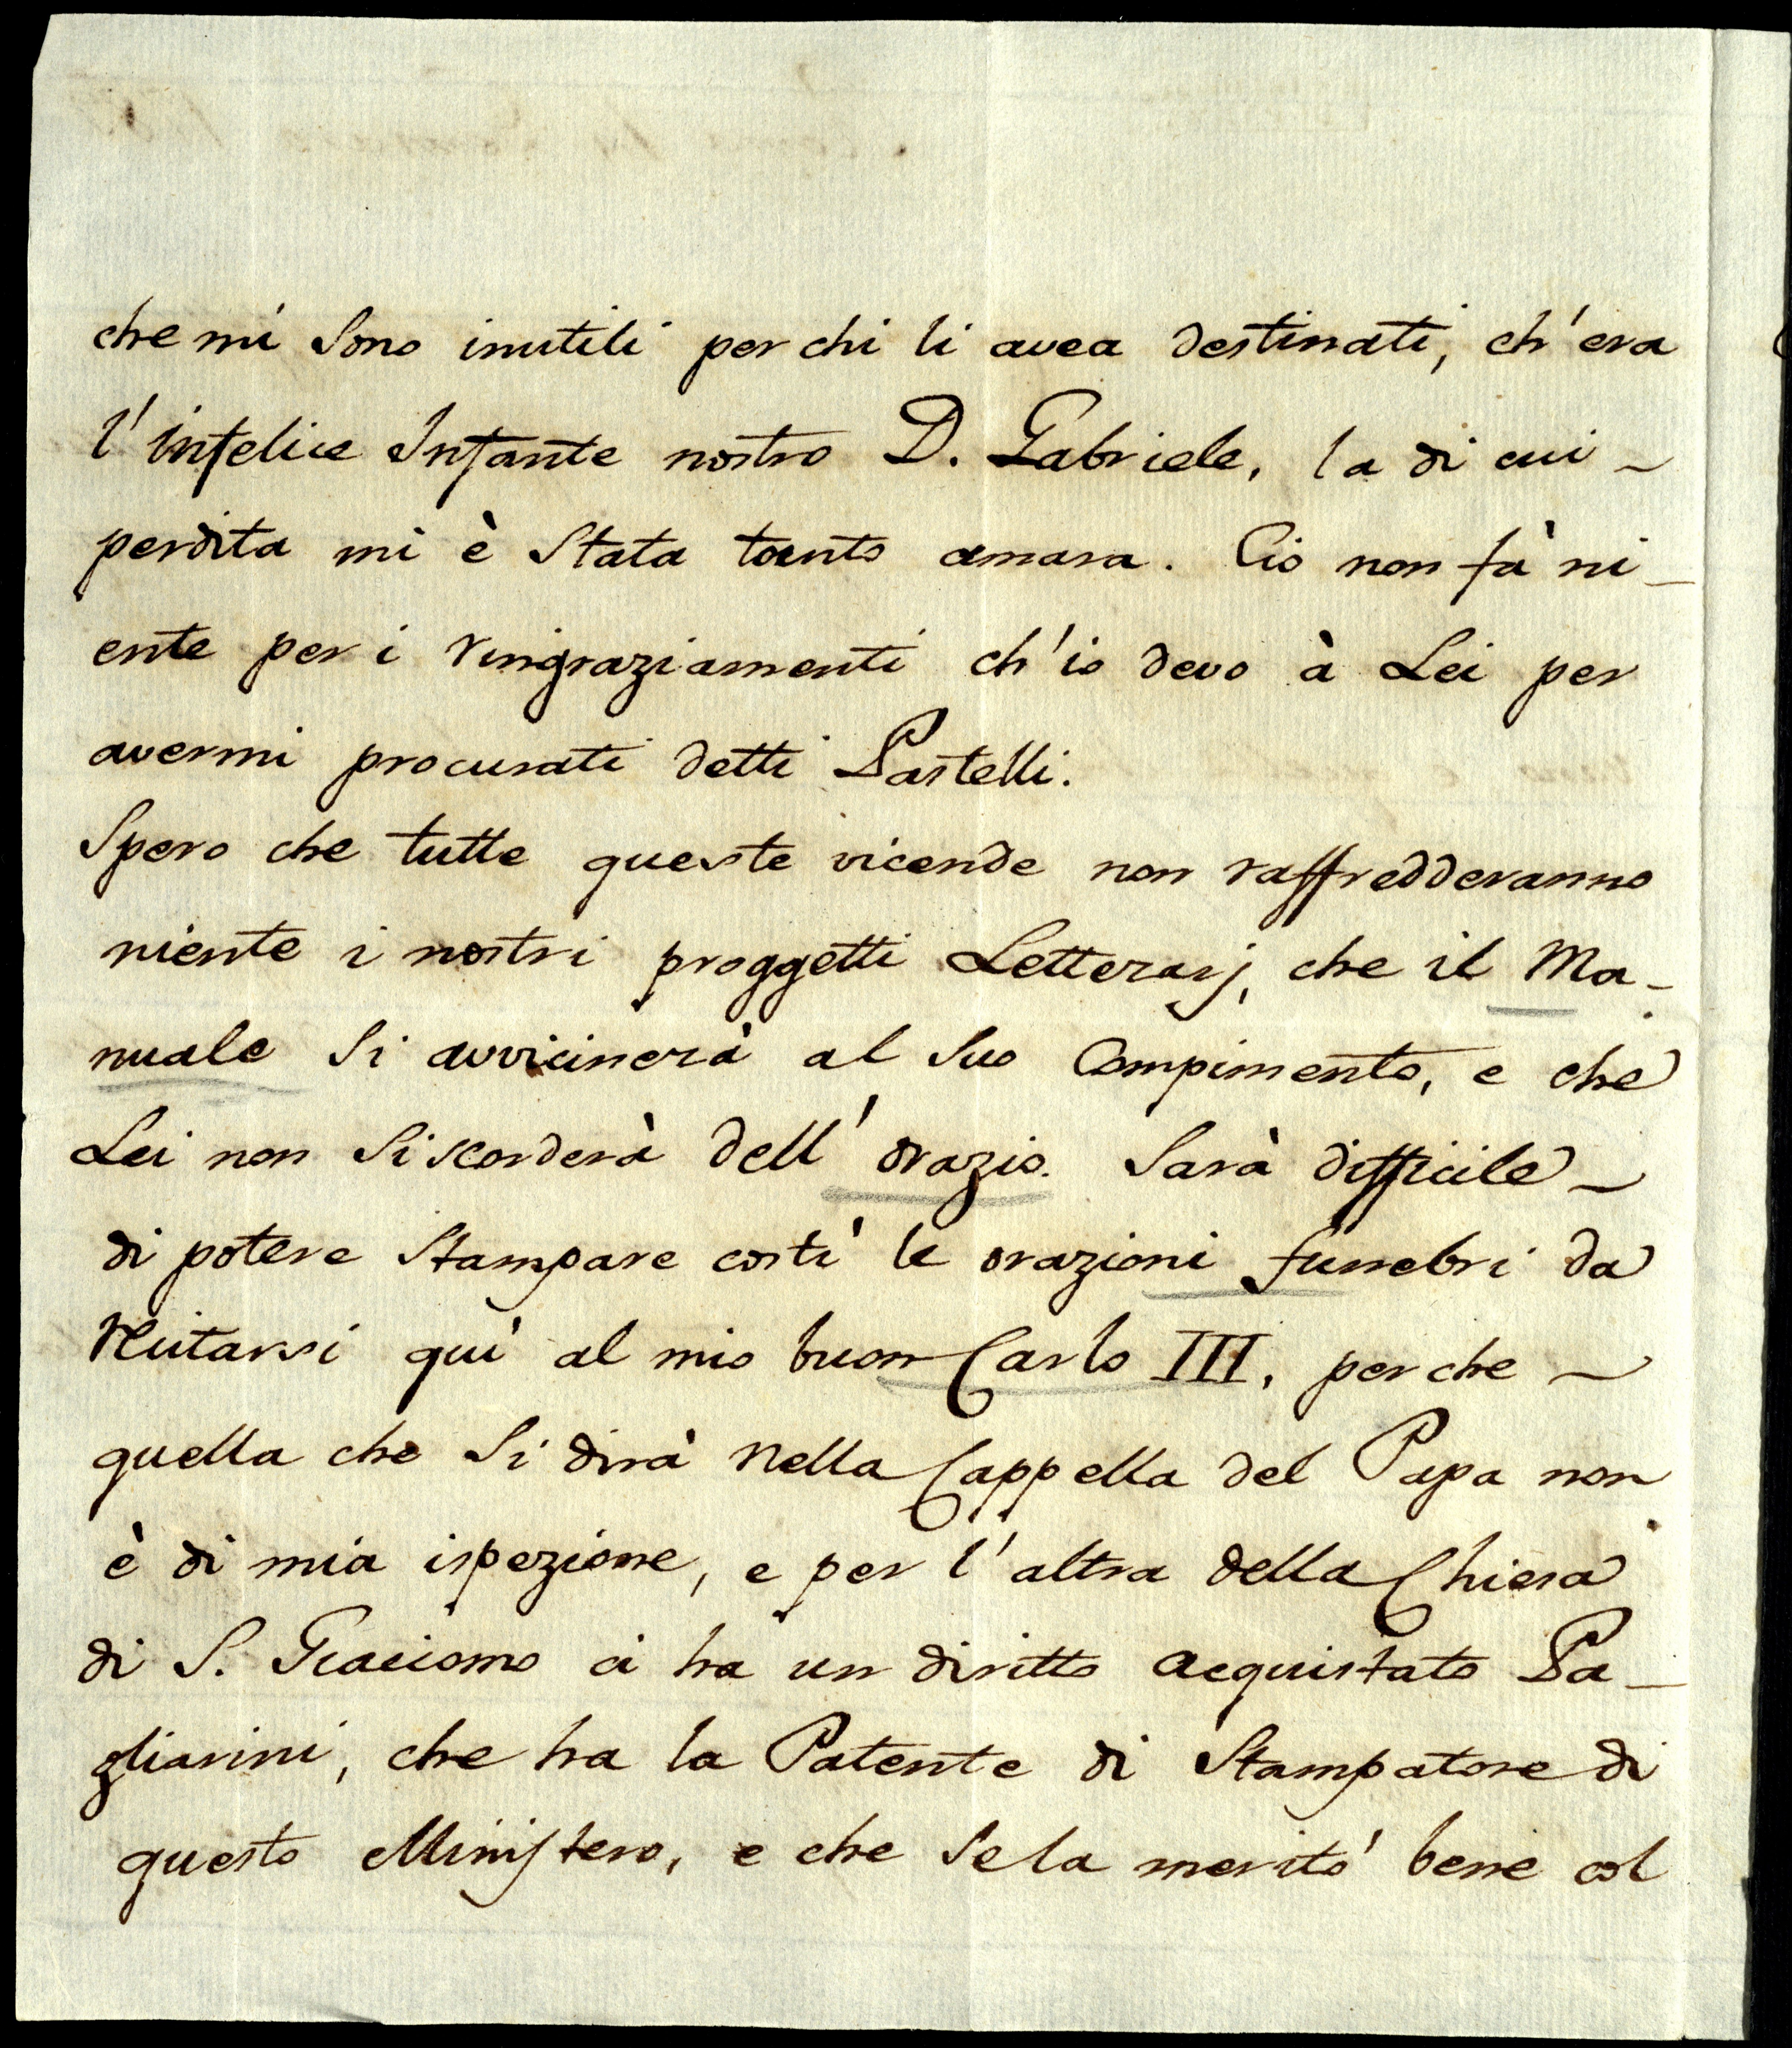 che mi sono inutili per chi li avea destinati, ch'era
l'infelice Infante nostro D. Gabriele, la di cui
perdita mi è stata tanto amara. Cio non fà ni-
ente per i ringraziamenti ch'io devo à Lei per
avermi procurati detti Pastelli.
Spero che tutte queste vicende non raffredderanno
niente i nostri proggetti Letterarj, che il Ma-
nuale si avvicinerà al suo Compimento, e che
Lei non si scorderà dell'orazio. Sarà difficile
di potere stampare costi le orazioni funebri da
recitarsi quì al mio buon Carlo III, perche
quella che si dirà nella Cappella del Papa non
è di mia ispezione, e per l'altra della Chiesa
di S. Giacomo ci ha un diritto acquistato Pa-
gliarini, che ha la Patente di stampatore di
questo Ministero, e che se la meritò bene col